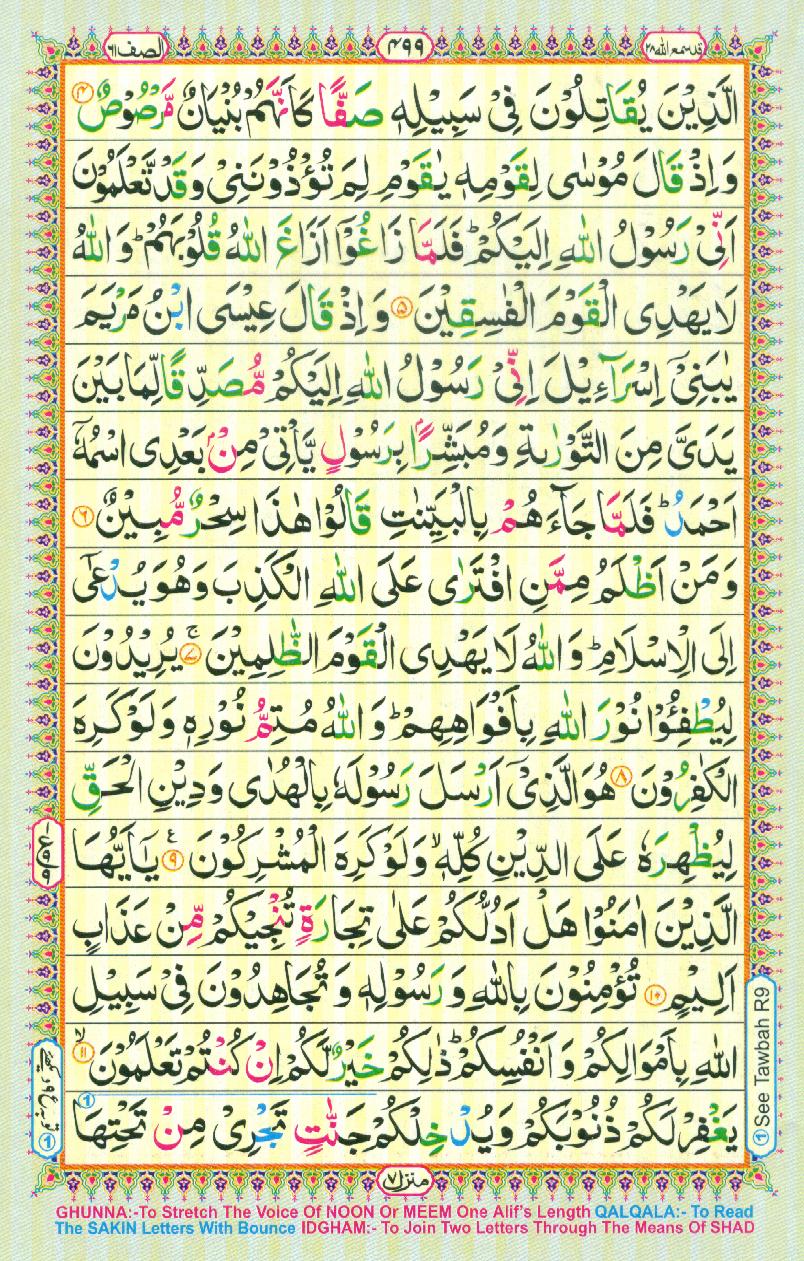 قد سمع الله ۲۸
۴۹۹
الصف ٦١
الَّذِیْنَ یُقَاتِلُوْنَ فِیْ سَبِیْلِهٖ صَفًّا كَاَنَّهُمْ بُنْیَانٌ مَّرْصُوْصٌ ۴
وَ اِذْ قَالَ مُوْسٰی لِقَوْمِهٖ یٰقَوْمِ لِمَ تُؤْذُوْنَنِیْ وَ قَدْ تَّعْلَمُوْنَ
اَنِّیْ رَسُوْلُ اللّٰهِ اِلَیْكُمْ ؕ فَلَمَّا زَاغُوْۤا اَزَاغَ اللّٰهُ قُلُوْبَهُمْ ؕ وَ اللّٰهُ
لَا یَهْدِی الْقَوْمَ الْفٰسِقِیْنَ ۵ وَ اِذْ قَالَ عِیْسَی ابْنُ مَرْیَمَ
یٰبَنِیْۤ اِسْرَآءِیْلَ اِنِّیْ رَسُوْلُ اللّٰهِ اِلَیْكُمْ مُّصَدِّقًا لِّمَا بَیْنَ
یَدَیَّ مِنَ التَّوْرٰىةِ وَ مُبَشِّرًۢا بِرَسُوْلٍ یَّاْتِیْ مِنْۢ بَعْدِی اسْمُهٗۤ
اَحْمَدُ ؕ فَلَمَّا جَآءَهُمْ بِالْبَیِّنٰتِ قَالُوْا هٰذَا سِحْرٌ مُّبِیْنٌ ۶
وَ مَنْ اَظْلَمُ مِمَّنِ افْتَرٰی عَلَی اللّٰهِ الْكَذِبَ وَ هُوَ یُدْعٰۤی
اِلَی الْاِسْلَامِ ؕ وَ اللّٰهُ لَا یَهْدِی الْقَوْمَ الظّٰلِمِیْنَ ۚ ۷ یُرِیْدُوْنَ
لِیُطْفِـُٔوْا نُوْرَ اللّٰهِ بِاَفْوَاهِهِمْ ؕ وَ اللّٰهُ مُتِمُّ نُوْرِهٖ وَ لَوْ كَرِهَ
الْكٰفِرُوْنَ ۸ هُوَ الَّذِیْۤ اَرْسَلَ رَسُوْلَهٗ بِالْهُدٰی وَ دِیْنِ الْحَقِّ
لِیُظْهِرَهٗ عَلَی الدِّیْنِ كُلِّهٖ ۙ وَ لَوْ كَرِهَ الْمُشْرِكُوْنَ ۹ یٰۤاَیُّهَا
الَّذِیْنَ اٰمَنُوْا هَلْ اَدُلُّكُمْ عَلٰی تِجَارَةٍ تُنْجِیْكُمْ مِّنْ عَذَابٍ
اَلِیْمٍ ۱۰ تُؤْمِنُوْنَ بِاللّٰهِ وَ رَسُوْلِهٖ وَ تُجَاهِدُوْنَ فِیْ سَبِیْلِ
اللّٰهِ بِاَمْوَالِكُمْ وَ اَنْفُسِكُمْ ؕ ذٰلِكُمْ خَیْرٌ لَّكُمْ اِنْ كُنْتُمْ تَعْلَمُوْنَ ۙ ۱۱
یَغْفِرْ لَكُمْ ذُنُوْبَكُمْ وَ یُدْخِلْكُمْ جَنّٰتٍ تَجْرِیْ مِنْ تَحْتِهَا ①
① See Tawbah R9
منزل ۷
GHUNNA:-To Stretch The Voice Of NOON Or MEEM One Alif's Length QALQALA:- To Read
The SAKIN Letters With Bounce IDGHAM:- To Join Two Letters Through The Means Of SHAD